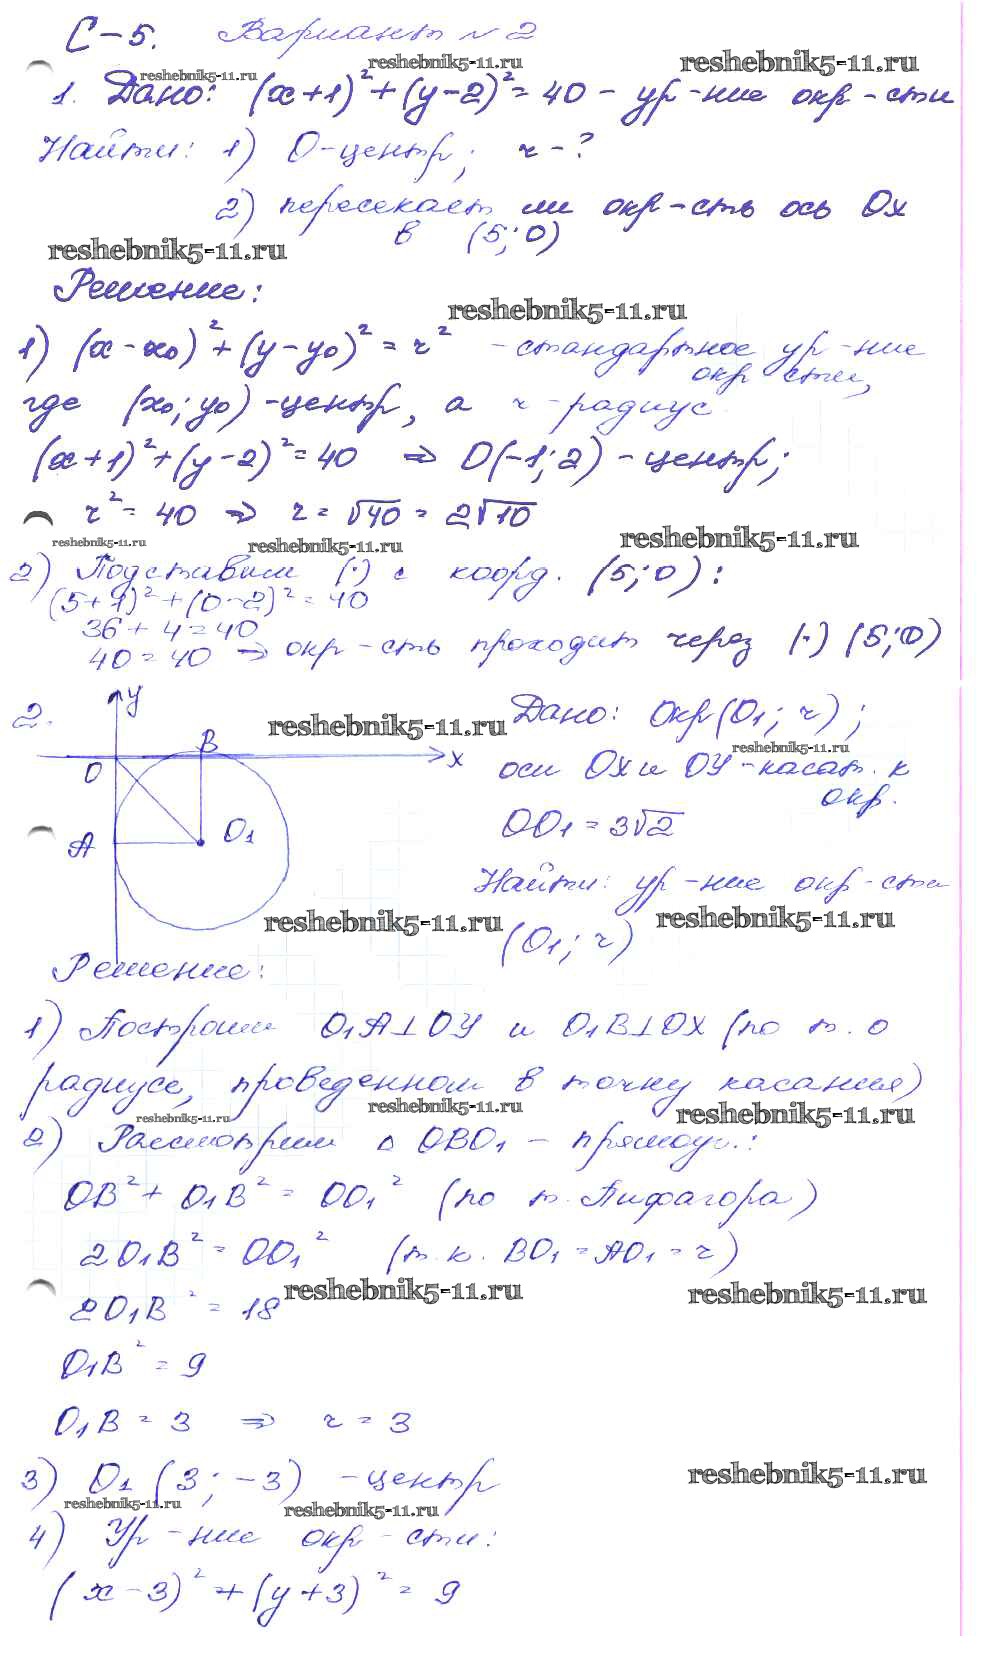 С-5. Вариант №2
reshebnik5-11.ru reshebnik5-11.ru reshebnik5-11.ru
1. Дано: (x+1)²+(y-2)²=40 - ур-ние окр-сти
Найти: 1) O-центр; r-?
2) пересекает ли окр-сть ось Ox
в (5;0)
reshebnik5-11.ru
Решение:
reshebnik5-11.ru
1) (x-x₀)²+(y-y₀)²=r² -стандартное ур-ние
окр-сти,
где (x₀;y₀)-центр, а r-радиус
(x+1)²+(y-2)²=40 ⇒ O(-1;2)-центр;
r²=40 ⇒ r=√40=2√10
reshebnik5-11.ru reshebnik5-11.ru reshebnik5-11.ru
2) Подставим (·) с коорд. (5;0):
(5+1)²+(0-2)²=40
36+4=40
40=40 ⇒ окр-сть проходит через (·) (5;0)
2.
y
B
x
O
A
O₁
reshebnik5-11.ru
Дано: Окр(O₁; r);
reshebnik5-11.ru
оси OX и OY-касат. к
окр.
OO₁=3√2
Найти: ур-ние окр-сти
reshebnik5-11.ru reshebnik5-11.ru
(O₁; r)
Решение:
1) Построим O₁A⊥OY и O₁B⊥OX (по т. о
радиусе, проведенном в точку касания)
reshebnik5-11.ru reshebnik5-11.ru reshebnik5-11.ru
2) Рассмотрим △OBO₁ - прямоуг.:
OB²+O₁B²=OO₁² (по т. Пифагора)
2O₁B²=OO₁² (т.к. BO₁=AO₁=r)
reshebnik5-11.ru reshebnik5-11.ru
2O₁B²=18
O₁B²=9
O₁B=3 ⇒ r=3
3) O₁(3;-3) -центр
reshebnik5-11.ru
reshebnik5-11.ru reshebnik5-11.ru
4) Ур-ние окр-сти:
(x-3)²+(y+3)²=9